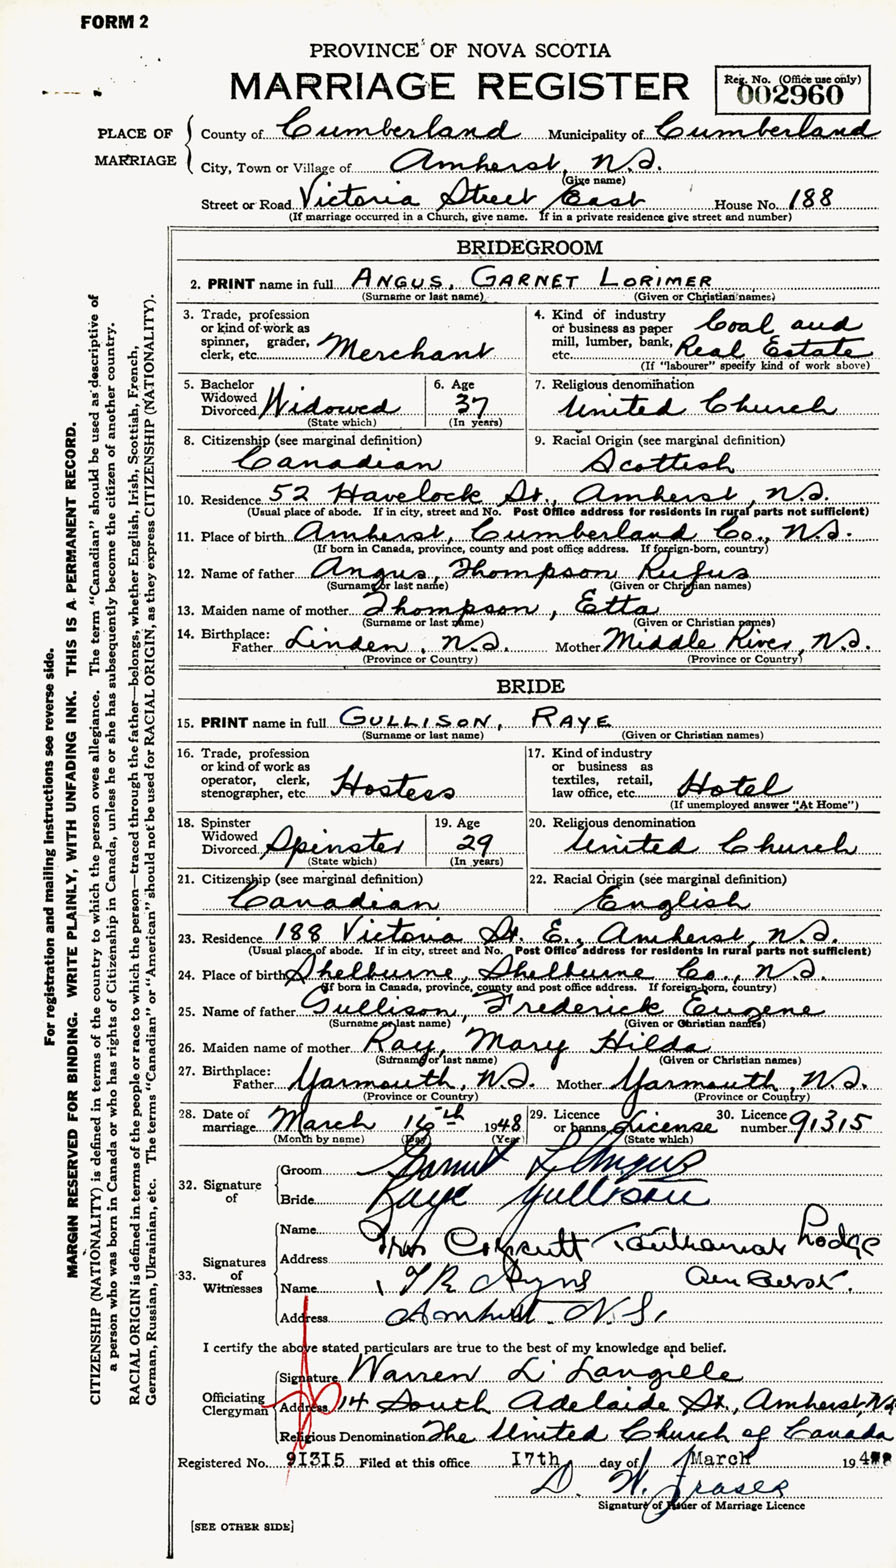 FORM 2
PROVINCE OF NOVA SCOTIA
MARRIAGE REGISTER
Reg. No. (Office use only)
002960
PLACE OF MARRIAGE
County of Cumberland Municipality of Cumberland
City, Town or Village of Amherst, N.S.
(Give name)
Street or Road Victoria Street East House No. 188
(If marriage occurred in a Church, give name. If in a private residence give street and number)
BRIDEGROOM
2. PRINT name in full ANGUS, GARNET LORIMER
(Surname or last name) (Given or Christian names)
3. Trade, profession
or kind of work as
spinner, grader,
clerk, etc. Merchant
4. Kind of industry
or business as paper
mill, lumber, bank,
etc. Coal and Real Estate
(If "labourer" specify kind of work above)
5. Bachelor
Widowed
Divorced Widowed
(State which)
6. Age
37
(In years)
7. Religious denomination
United Church
8. Citizenship (see marginal definition)
Canadian
9. Racial Origin (see marginal definition)
Scottish
10. Residence 52 Havelock St., Amherst, N.S.
(Usual place of abode. If in city, street and No. Post Office address for residents in rural parts not sufficient)
11. Place of birth Amherst, Cumberland Co., N.S.
(If born in Canada, province, county and post office address. If foreign-born, country)
12. Name of father Angus, Thompson Rufus
(Surname or last name) (Given or Christian names)
13. Maiden name of mother Thompson, Etta
(Surname or last name) (Given or Christian names)
14. Birthplace:
Father Linden, N.S. Mother Middle River, N.S.
(Province or Country) (Province or Country)
BRIDE
15. PRINT name in full GULLISON, RAYE
(Surname or last name) (Given or Christian names)
16. Trade, profession
or kind of work as
operator, clerk,
stenographer, etc. Hostess
17. Kind of industry
or business as
textiles, retail,
law office, etc. Hotel
(If unemployed answer "At Home")
18. Spinster
Widowed
Divorced Spinster
(State which)
19. Age
29
(In years)
20. Religious denomination
United Church
21. Citizenship (see marginal definition)
Canadian
22. Racial Origin (see marginal definition)
English
23. Residence 188 Victoria St. E., Amherst, N.S.
(Usual place of abode. If in city, street and No. Post Office address for residents in rural parts not sufficient)
24. Place of birth Shelburne, Shelburne Co., N.S.
(If born in Canada, province, county and post office address. If foreign-born, country)
25. Name of father Gullison, Frederick Eugene
(Surname or last name) (Given or Christian names)
26. Maiden name of mother Ray, Mary Hilda
(Surname or last name) (Given or Christian names)
27. Birthplace:
Father Yarmouth, N.S. Mother Yarmouth, N.S.
(Province or Country) (Province or Country)
28. Date of
marriage March 16th 1948
(Month by name) (Day) (Year)
29. Licence
or banns License
(State which)
30. Licence
number 91315
32. Signature of
Groom Garnet L Angus
Bride Raye Gullison
33. Signatures of Witnesses
Name Mrs Lodge
Address
Name
Address Amherst. N.S.
I certify the above stated particulars are true to the best of my knowledge and belief.
Officiating Clergyman
Signature Warren L. Langille
Address 14 South Adelaide St., Amherst, N.S.
Religious Denomination The United Church of Canada
Registered No. 91315 Filed at this office 17th day of March 194
D. W. Fraser
Signature of Issuer of Marriage Licence
[SEE OTHER SIDE]
For registration and mailing instructions see reverse side.
MARGIN RESERVED FOR BINDING. WRITE PLAINLY, WITH UNFADING INK. THIS IS A PERMANENT RECORD.
CITIZENSHIP (NATIONALITY) is defined in terms of the country to which the person owes allegiance. The term "Canadian" should be used as descriptive of
a person who was born in Canada or who has rights of Citizenship in Canada, unless he or she has subsequently become the citizen of another country.
RACIAL ORIGIN is defined in terms of the people or race to which the person—traced through the father—belongs, whether English, Irish, Scottish, French,
German, Russian, Ukrainian, etc. The terms "Canadian" or "American" should not be used for RACIAL ORIGIN, as they express CITIZENSHIP (NATIONALITY).